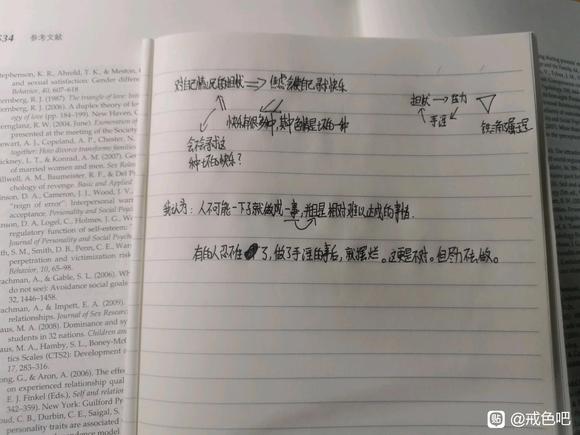 534 参考文献
Stephenson, K. R., Ahrold, T. K., & Meston,
and sexual satisfaction: Gender differ
Behavior, 40, 607–618
Sternberg, R. J. (1987) The triangle of love: Int
Sternberg, R. J. (2006). A duplex theory of lo
ogy of love (pp. 184–199). New Haven, C
Sternglanz, R. W. (2004, June). Exoneration of
presented at the meeting of the Society
Stewart, A. J., Copeland, A. P., Chester, N.
together: How divorce transforms families
Stickney, L. T., & Konrad, A. M. (2007). Ge
of married women and men. Sex Roles
Stillwell, A. M., Baumeister, R. F., & Del P
chology of revenge. Basic and Applied
D. A., Cameron, J. J., Wood, J. V
"reign of error": Interpersonal warm
acceptance. Personality and Social Psy
D. A, Logel, C., Holmes, J. G.
regulatory function of self-esteem:
Journal of Personality and Social Psy
S. M., Smith, D. B., Penn, C. E., War
perpetration and victimization risk
Behavior, 10, 65–98.
A., & Gable, S. L. (2006). W
do not see): Avoidance social goals
32, 1446–1458.
A., & Impett, E. A. (2009).
relationships. Journal of Sex Resear
M. A. (2008). Dominance and sy
students in 32 nations. Children and
M. A., Hamby, S. L., Boney-McC
tics Scales (CTS2): Development
17, 283–316.
G., & Aron, A. (2006). The effe
on experienced relationship qual
E. J. Finkel (Eds.), Self and relation
342–359). New York: Guilford
C. B., Durbin, C. E., Saigal, S.
personality traits are associated
对自己情况的担忧 ⇒ 但忘会使自己寻求快乐
担忧 → 压力
手淫
铁三角
快乐有很多种，其中色情是坏的一种
会不会寻求这
种坏的快乐？
我认为：人不可能一下子就做成一事，并且是相对难以达成的事情.
有的人忍不住了，做了手淫的事后，就摆烂。这更是不对。但尽力不去做。
贴 @戒色吧